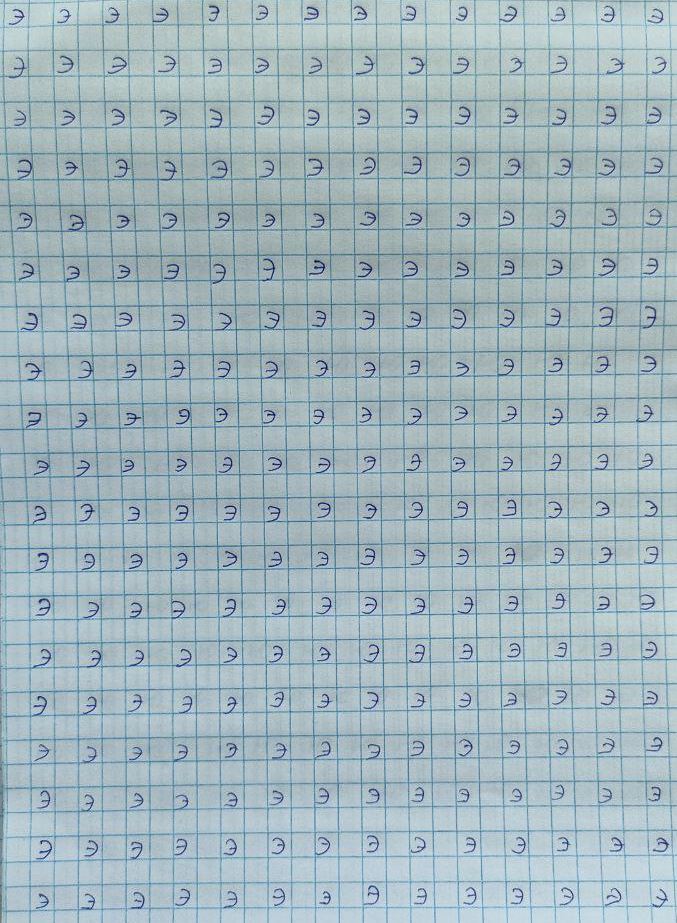 Э Э Э Э Э Э Э Э Э Э Э Э Э Э
Э Э Э Э Э Э Э Э Э Э Э Э Э Э
Э Э Э Э Э Э Э Э Э Э Э Э Э Э
Э Э Э Э Э Э Э Э Э Э Э Э Э Э
Э Э Э Э Э Э Э Э Э Э Э Э Э Э
Э Э Э Э Э Э Э Э Э Э Э Э Э Э
Э Э Э Э Э Э Э Э Э Э Э Э Э Э
Э Э Э Э Э Э Э Э Э Э Э Э Э Э
Э Э Э Э Э Э Э Э Э Э Э Э Э Э
Э Э Э Э Э Э Э Э Э Э Э Э Э Э
Э Э Э Э Э Э Э Э Э Э Э Э Э Э
Э Э Э Э Э Э Э Э Э Э Э Э Э Э
Э Э Э Э Э Э Э Э Э Э Э Э Э Э
Э Э Э Э Э Э Э Э Э Э Э Э Э Э
Э Э Э Э Э Э Э Э Э Э Э Э Э Э
Э Э Э Э Э Э Э Э Э Э Э Э Э Э
Э Э Э Э Э Э Э Э Э Э Э Э Э Э
Э Э Э Э Э Э Э Э Э Э Э Э Э Э
Э Э Э Э Э Э Э Э Э Э Э Э Э Э